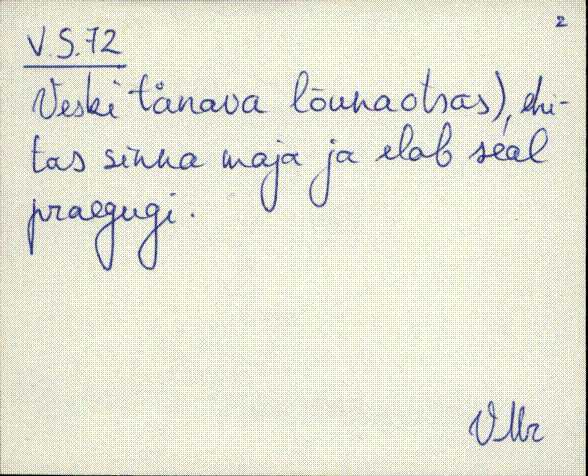 2
V.S.72
Veski tänava lõunaotsas), ehi-
tas sinna maja ja elab seal
praegugi.
VMr